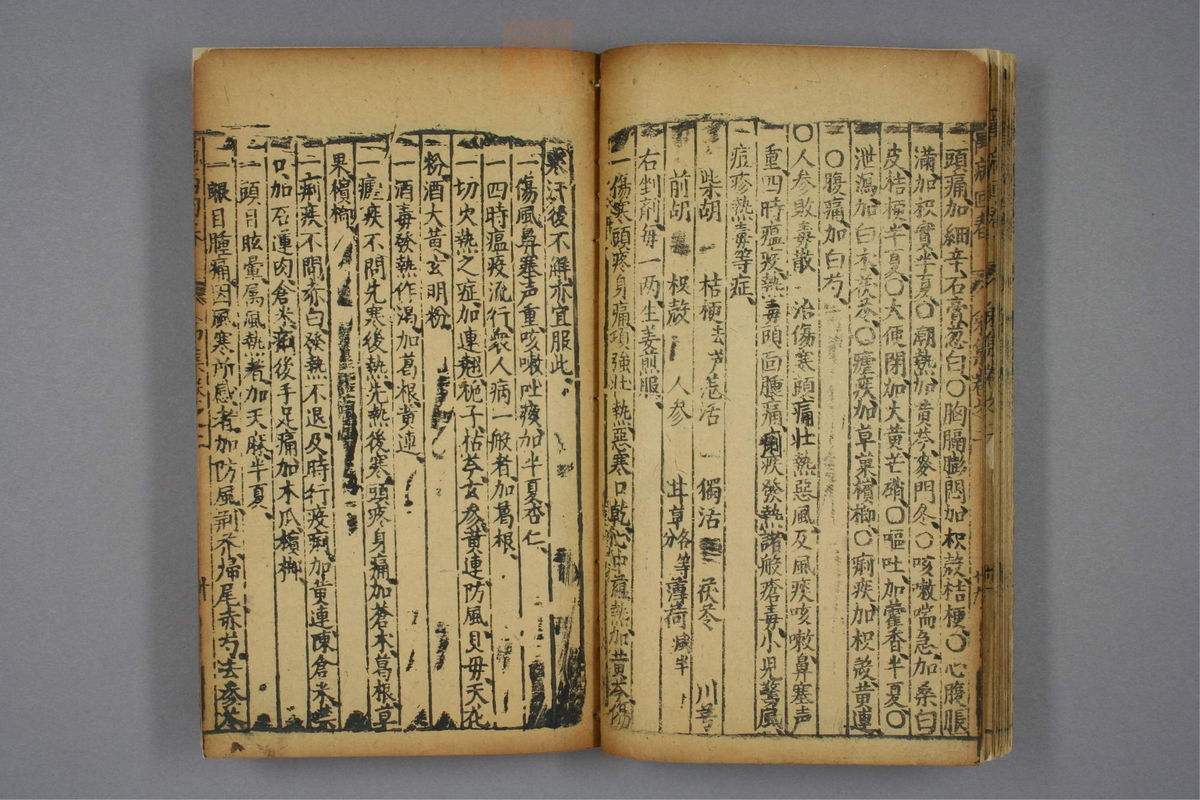 頭痛加細辛石膏葱白〇胸膈膨悶加枳殼桔梗〇心腹脹
滿加枳實半夏〇潮熱加黄芩麥門冬〇咳嗽喘急加桑白
皮桔梗半夏〇大便閉加大黄芒硝〇嘔吐加藿香半夏〇
泄瀉加白朮茯苓〇瘧疾加草菓檳榔〇痢疾加枳殼黄連
〇腹痛加白芍
〇人參敗毒散 治傷寒頭痛壯熱惡風及風痰咳嗽鼻塞声
重四時瘟疫熱毒頭面腫痛痢疾發熱諸般瘡毒小児驚風
痘疹熱毒等症
柴胡 桔梗去芦 羗活 獨活 茯苓 川芎
前胡 枳殼 人參 甘草各等分 薄荷减半
右剉剤每一两生姜煎服
一傷寒頭疼身痛項強壮熱惡寒口乾心中藴熱加黄芩傷
寒汗後不解亦宜服此
一傷風鼻塞声重咳嗽吐痰加半夏杏仁
一四時瘟疫流行衆人病一般者加葛根
一切火熱之症加連翹梔子枯芩玄參黄連防風貝母天花
粉酒大黄玄明粉
一酒毒發熱作渴加葛根黄連
一瘧疾不問先寒後熱先熱後寒頭疼身痛加蒼朮葛根草
果檳榔
一痢疾不問赤白發熱不退及時行疫痢加黄連陳倉米禁
口加石蓮肉倉米痢後手足痛加木瓜檳榔
一頭目眩暈属風熱者加天麻半夏
一眼目腫痛因風寒所感者加防風荆芥歸尾赤芍去參茯